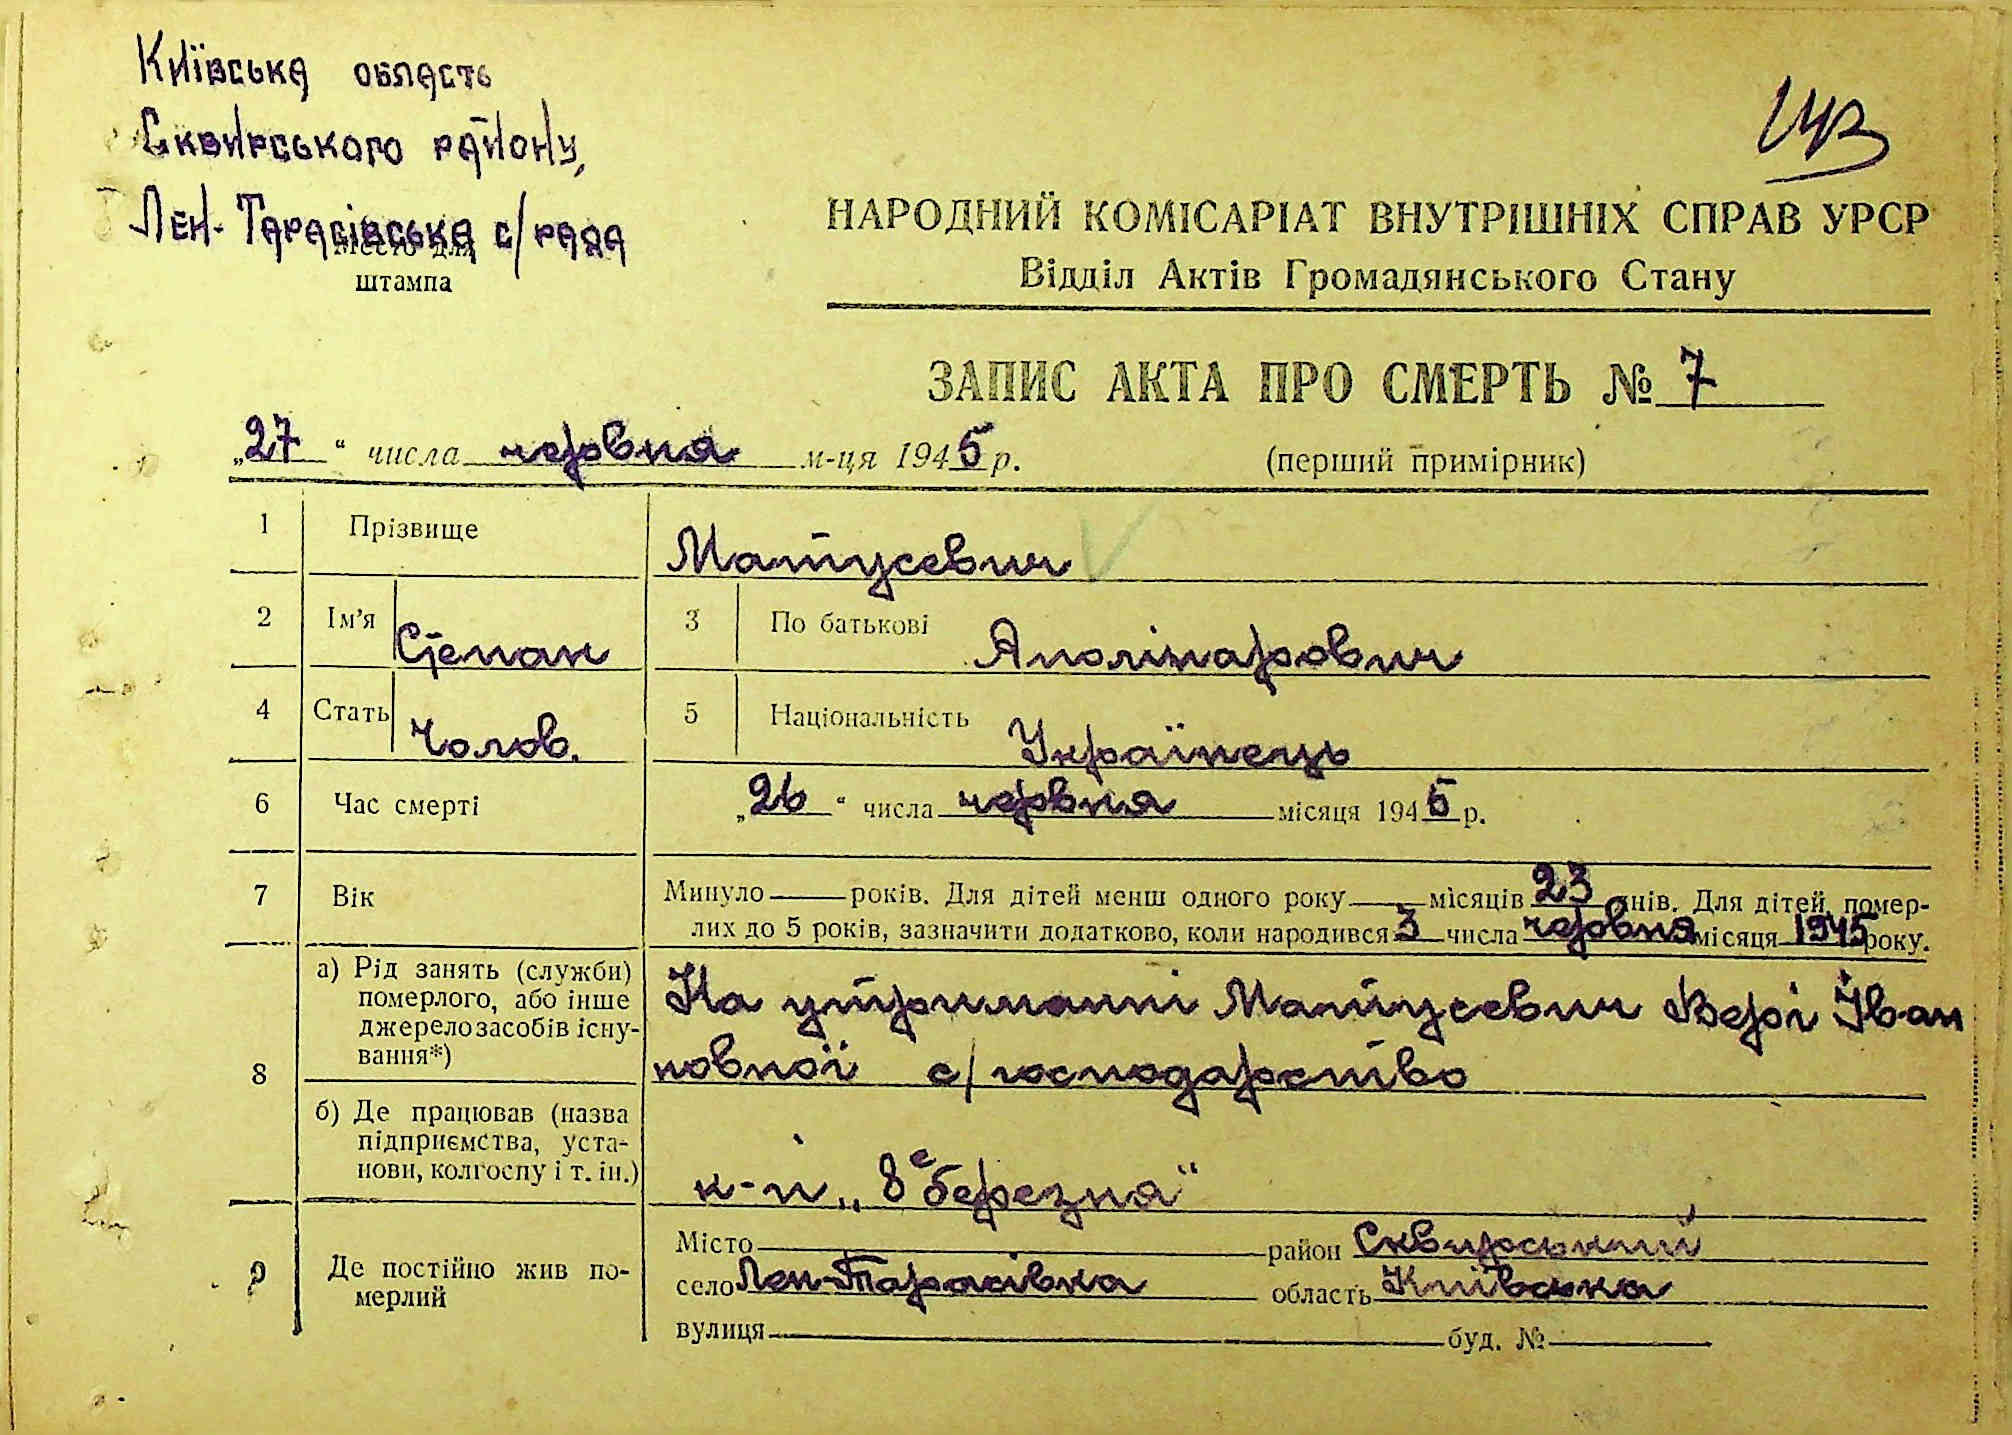 Київська область
Сквирського району,
Лен-Тарасівська с/рада
Место для
штампа
НАРОДНИЙ КОМІСАРІАТ ВНУТРІШНІХ СПРАВ УРСР
Відділ Актів Громадянського Стану
ЗАПИС АКТА ПРО СМЕРТЬ № 7
„27“ числа червня м-ця 1945 р.
(перший примірник)
1 Прізвище Матусевич
2 Ім'я Степан 3 По батькові Аполінарович
4 Стать Чолов. 5 Національність Українець
6 Час смерті „26“ числа червня місяця 1945 р.
7 Вік Минуло — років. Для дітей менш одного року — місяців 23 днів. Для дітей, помер-
лих до 5 років, зазначити додатково, коли народився 3 числа червня місяця 1945 року.
8
а) Рід занять (служби)
померлого, або інше
джерело засобів існу-
вання*)
На утриманні Матусевич Вері Іван
новної с/господарство
б) Де працював (назва
підприємства, уста-
нови, колгоспу і т. ін.)
к-п „8е березня“
9 Де постійно жив по-
мерлий
Місто — район Сквирський
село Лен-Тарасівка область Київська
вулиця — буд. № —